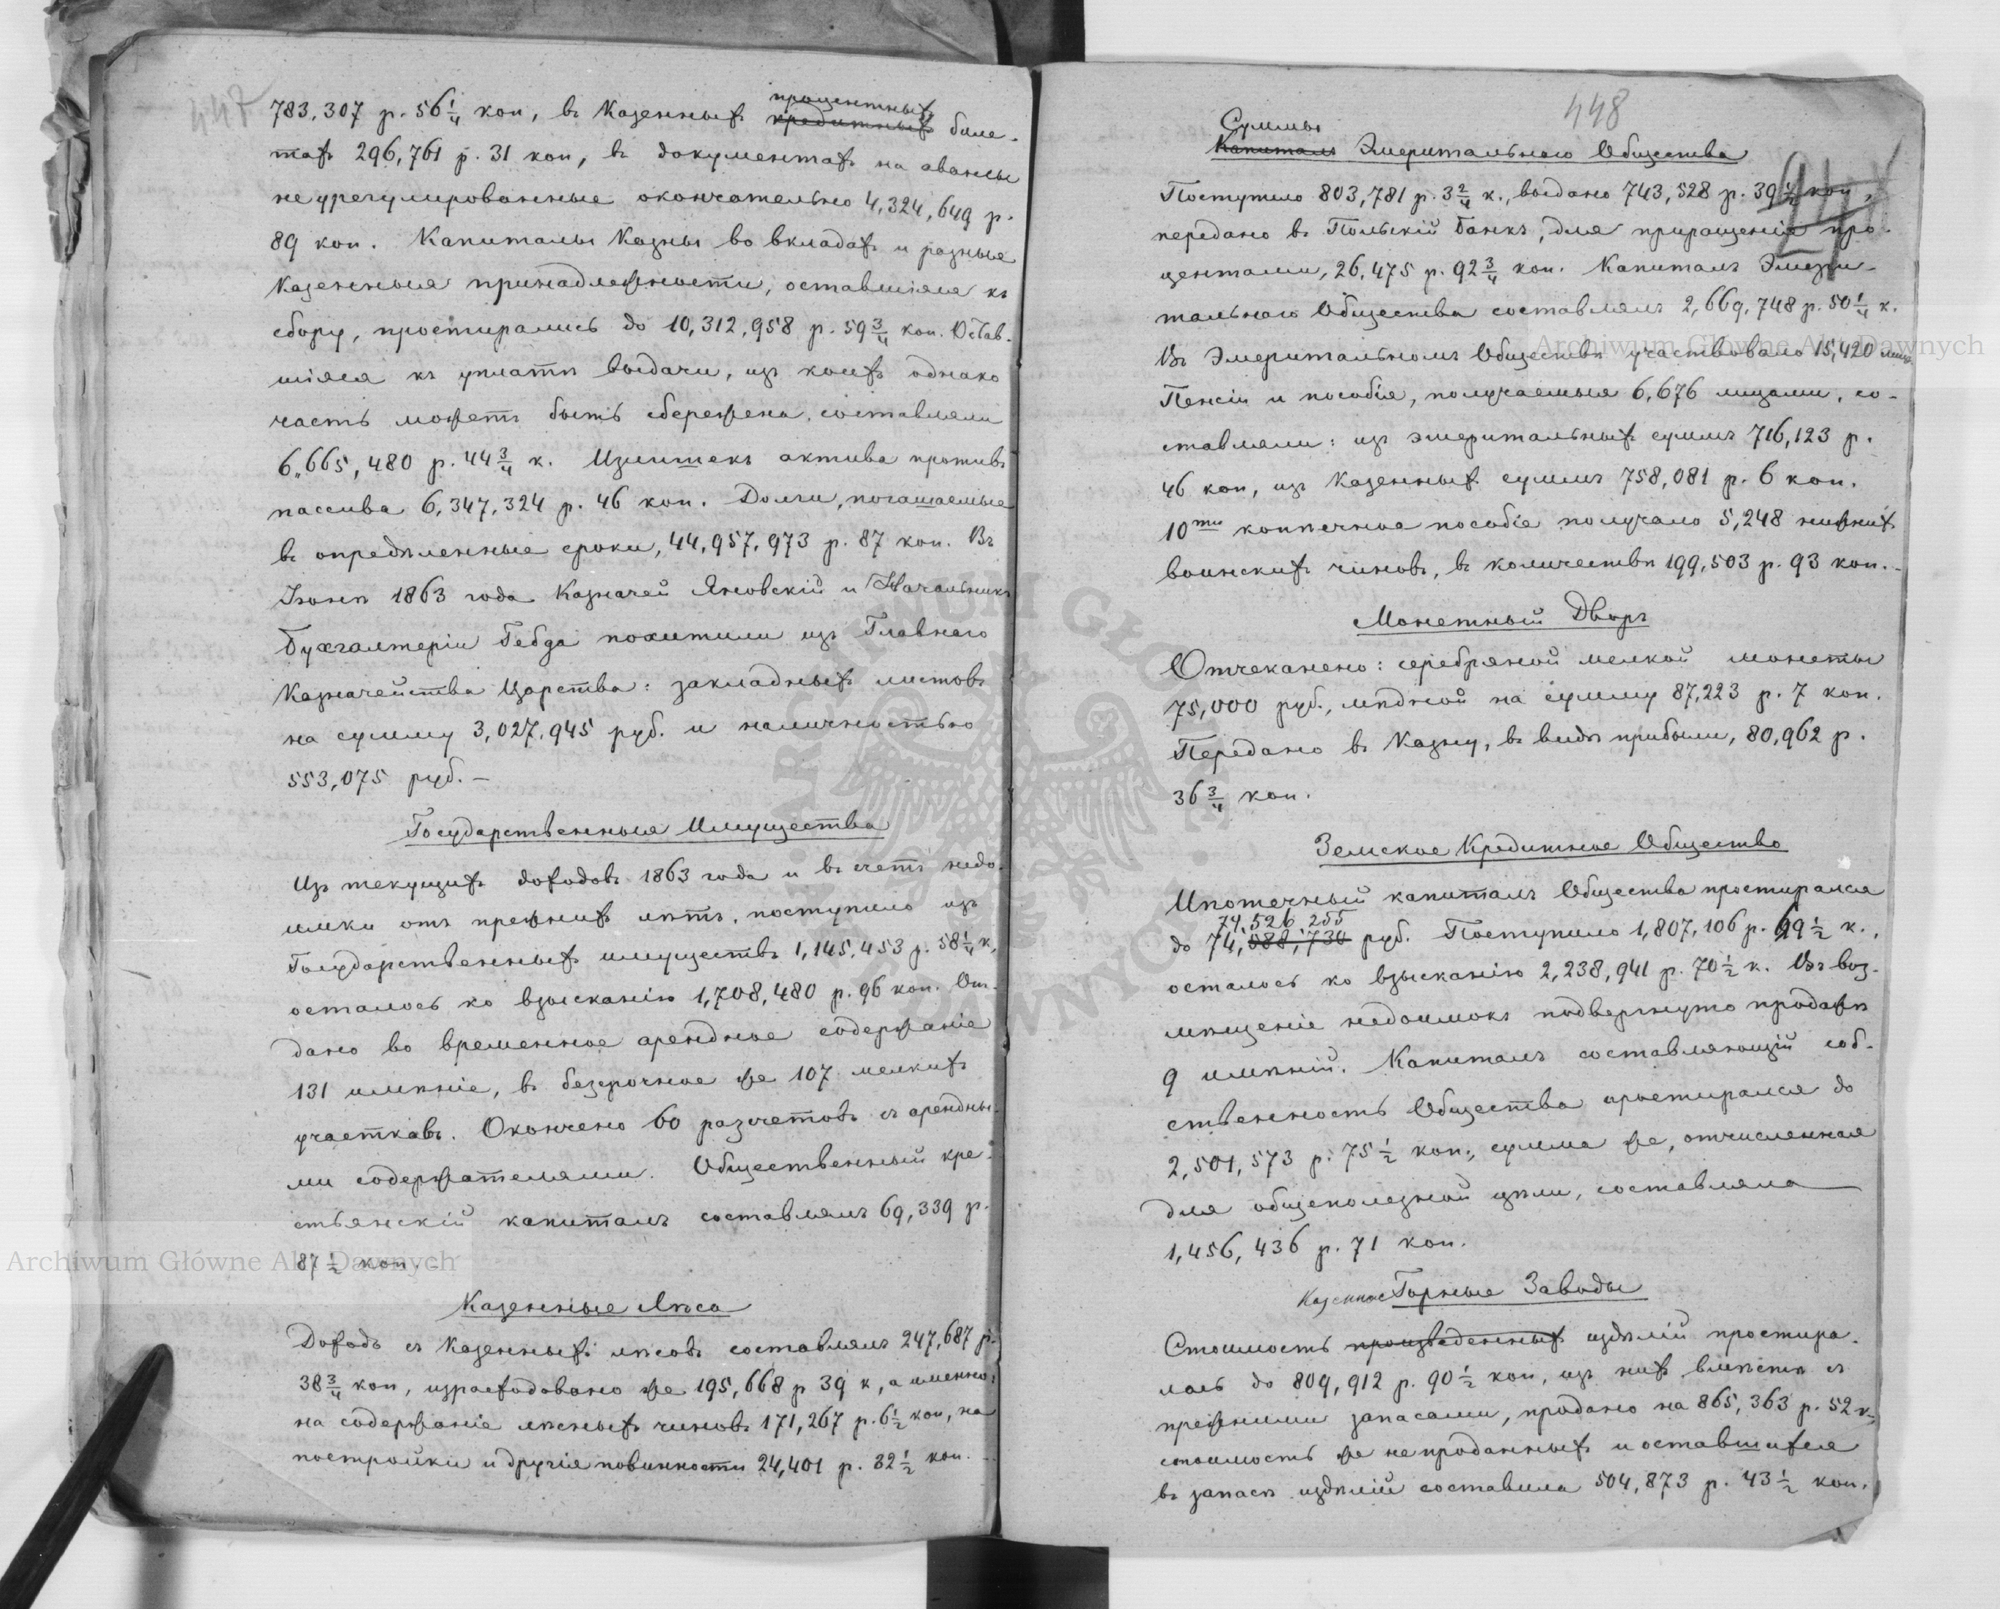 447
783,307 р. 56 1/4 коп, въ Казенныхъ процентныхъ кредитныхъ биле-
тахъ 296,761 р. 31 коп, въ документахъ на авансы
неурегулированные окончательно 4,324,649 р.
89 коп. Капиталы Казны во вкладахъ и разные
Казенныя принадлежности, оставшіяся къ
сбору, простирались до 10,312,958 р. 59 3/4 коп. Остав-
шіяся къ уплатѣ выдачи, изъ коихъ однако
часть можетъ быть сбережена, составляли
6,665,480 р. 44 3/4 к. Излишекъ актива противъ
пассива 6,347,324 р. 46 коп. Долги, погашаемые
въ опредѣленные сроки, 44,957,973 р. 87 коп. Въ
Іюнѣ 1863 года Казначей Яновскій и Начальникъ
Бухгалтеріи Гебда похитили изъ Главнаго
Казначейства Царства: закладныхъ листовъ
на сумму 3,027,945 руб. и наличностью
553,075 руб. –
Государственныя Имущества
Изъ текущихъ доходовъ 1863 года и въ счетъ недо-
имки отъ прежнихъ лѣтъ, поступило изъ
Государственныхъ имуществъ 1,145,453 р. 58 1/4 к,
осталось ко взысканію 1,708,480 р. 96 коп. От-
дано во временное арендное содержаніе
131 имѣніе, въ безсрочное же 107 мелкихъ
участковъ. Окончено 60 разсчетовъ съ арендны-
ми содержателями. Общественный кре-
стьянскій капиталъ составлялъ 69,339 р.
87 1/2 коп –
Казенные Лѣса
Доходъ съ Казенныхъ лѣсовъ составлялъ 247,687 р.
38 3/4 коп, израсходовано же 195,668 р 39 к, а именно:
на содержаніе лѣсныхъ чиновъ 171,267 р. 6 1/2 коп, на
постройки и другія повинности 24,401 р. 32 1/2 коп.
448
Суммы
Капиталъ Эмеритальнаго Общества
Поступило 803,781 р. 3 2/4 к., выдано 743,528 р. 39 1/2 коп,
передано въ Польскій Банкъ, для приращенія про-
центами, 26,475 р. 92 3/4 коп. Капиталъ Эмери-
тальнаго Общества составлялъ 2,669,748 р. 50 1/4 к.
Въ Эмеритальномъ Обществѣ участвовало 15,420 лицъ
Пенсіи и пособія, получаемыя 6,676 лицами, со-
ставляли: изъ эмеритальныхъ суммъ 716,123 р.
46 коп, изъ Казенныхъ суммъ 758,081 р. 6 коп.
10ти копѣечное пособіе получало 5,248 нижнихъ
воинскихъ чиновъ, въ количествѣ 199,503 р. 93 коп. –
Монетный Дворъ
Отчеканено: серебряной мелкой монеты
75,000 руб., мѣдной на сумму 87,223 р. 7 коп.
Передано въ Казну, въ видѣ прибыли, 80,962 р.
36 3/4 коп.
Земское Кредитное Общество
Ипотечный капиталъ Общества простирался
74,526,255
до 74,088,730 руб. Поступило 1,807,106 р. 99 1/2 к.,
осталось ко взысканію 2,238,941 р. 70 1/2 к. Въ воз-
мѣщеніе недоимокъ подвергнуто продажѣ
9 имѣній. Капиталъ составляющій соб-
ственность Общества простирался до
2,501,573 р. 75 1/2 коп., сумма же, отчисленная
для общеполезной цѣли, составляла
1,456,436 р. 71 коп.
Казенные Горные Заводы
Стоимость произведенныхъ издѣлій простира-
лась до 809,912 р. 90 1/2 коп, изъ нихъ вмѣстѣ съ
прежними запасами, продано на 865,363 р. 52 к,
стоимость же непроданныхъ и оставшихся
въ запасѣ издѣлій составила 504,873 р. 43 1/2 коп.
Archiwum Główne Akt Dawnych
Archiwum Główne Akt Dawnych